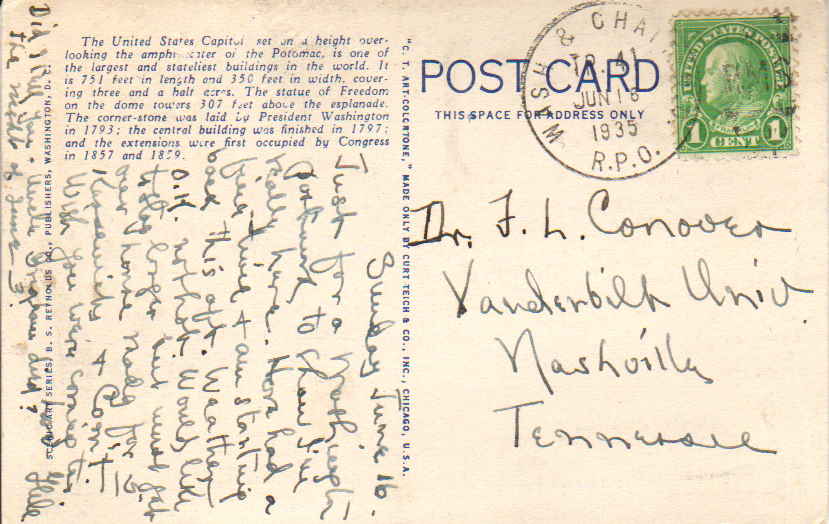 The United States Capitol set on a height over-
looking the amphitheater of the Potomac, is one of
the largest and stateliest buildings in the world. It
is 751 feet in length and 350 feet in width, cover-
ing three and a half acres. The statue of Freedom
on the dome towers 307 feet above the esplanade.
The corner-stone was laid by President Washington
in 1793; the central building was finished in 1797;
and the extensions were first occupied by Congress
in 1857 and 1859.
SCENIC ART SERIES) B. S. REYNOLDS CO., PUBLISHERS, WASHINGTON, D. C.
"C. T. ART-COLORTONE," MADE ONLY BY CURT TEICH & CO., INC., CHICAGO, U.S.A.
POST CARD
THIS SPACE FOR ADDRESS ONLY
WASH & CHAT
TR 41
JUN 16
1935
R.P.O.
UNITED STATES POSTAGE
1 CENT 1
Dr. F. L. Conover
Vanderbilt Univ.
Nashville
Tennessee
Sunday June 16.
Just for a
to show I've
really been here. Have had a
fine time & am starting
back this aft. Weather
O.K. not hot. Would like
to stay longer but must get
house ready for
&
Wish you were coming too
Did
the night of June 3?